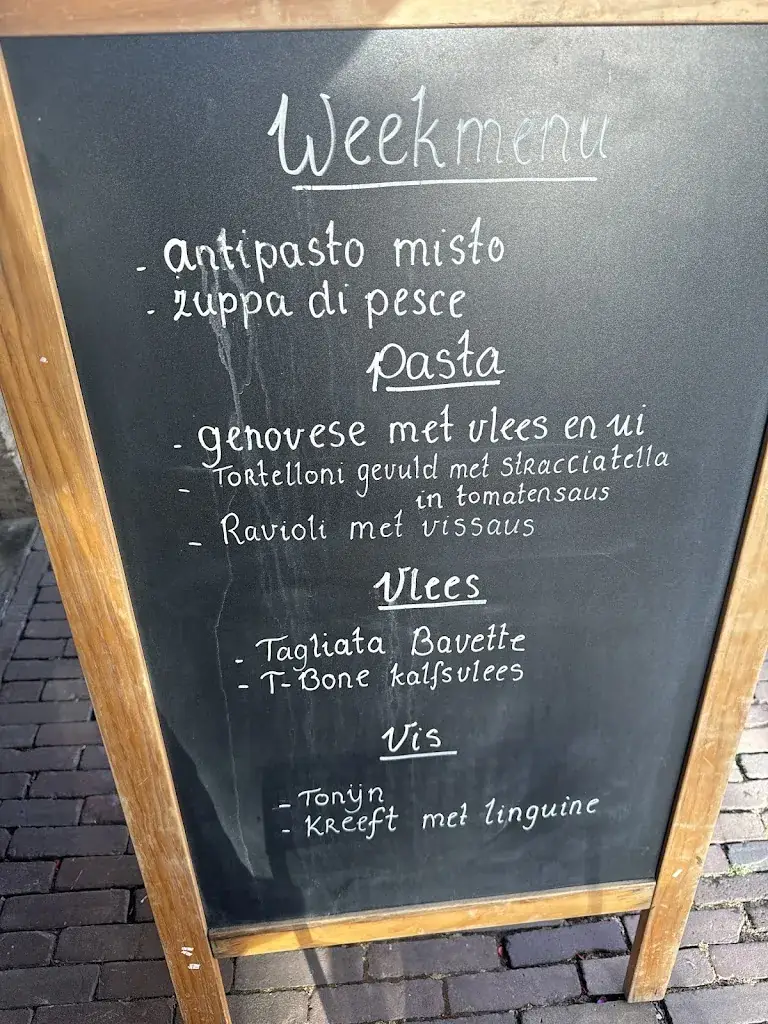 Weekmenu
- antipasto misto
- zuppa di pesce
pasta
- genovese met vlees en ui
- Tortelloni gevuld met stracciatella
in tomatensaus
- Ravioli met vissaus
Vlees
- Tagliata Bavette
- T-Bone kalfsvlees
Vis
- Tonijn
- Kreeft met linguine